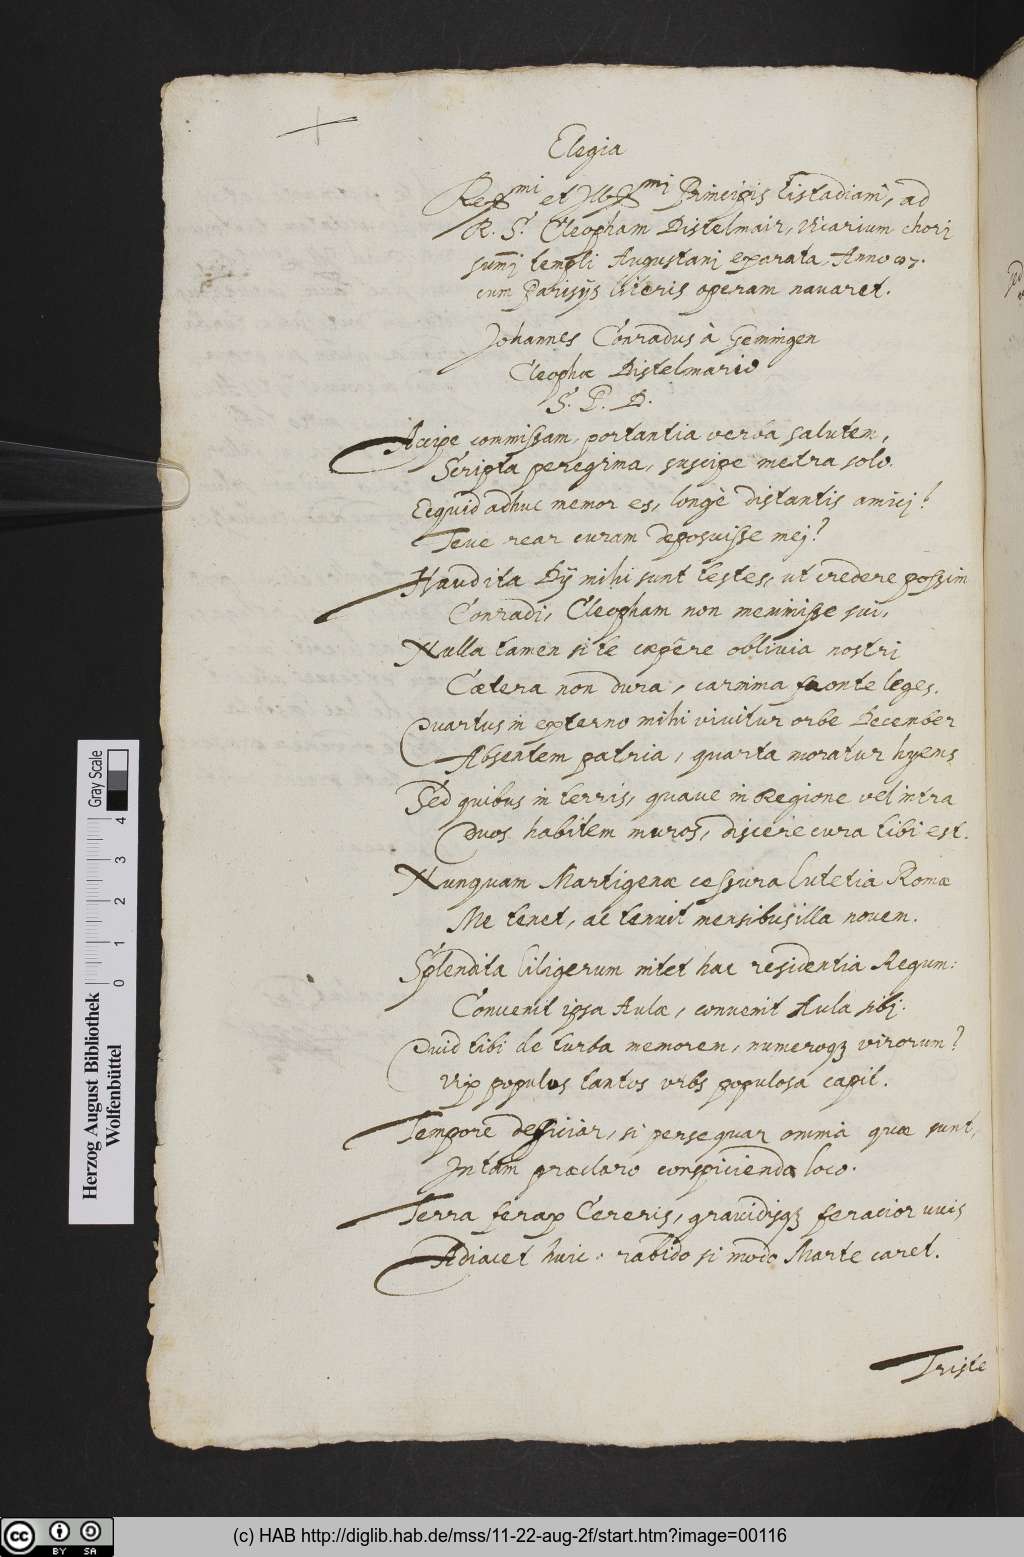 Elegia
Reẽmi et Illmi Principis Eistadiani, ad
R. S. Cleopham Distelmair, Vicarium chorj
summj templi Augustanj exarata, Anno 87.
cum Parisijs literis operam navaret.
Johannes Conradus à Gemmingen
Cleophæ Distelmario
S. P. D.
Accipe commissam, portantia verba salutem,
Scripta peregrina, suscipe metra solo.
Ecquid adhuc memor es, longè distantis amicj?
Teve rear curam deposuisse mej?
Haud ita Dij mihi sunt testes, ut credere possim
Conradi, Cleopham non meminisse sui,
Nulla tamen si te cæpêre oblivia nostri
Cætera non dura, carmina fronte leges.
Quartus in externo mihi vivitur orbe December
Absentem patria, quarta moratur hyems
Sed quibus in terris, quaue in Regione vel intra
Quos habitem muros, discere cura tibi est.
Nunquam Martigenæ cessura Lutetia Romæ
Me tenet, ac tenuit mensibus illa novem.
Splendita liligerum nitet hac residentia Regum:
Convenit ipsa Aulæ, convenit Aula sibj.
Quid tibi de turba memorem, numeroqʒ virorum?
Vix populos tantos vrbs populosa capit.
Tempore deficiar, si persequar omnia quæ sunt,
In tam præclaro conspicienda loco.
Terra ferax Cereris, gravidisqʒ feracior uvis
Adiacet huic: rabido si modo Marte caret.
Triste
Herzog August Bibliothek
Wolfenbüttel
0 1 2 3 4
Gray Scale
cc BY SA
(c) HAB http://diglib.hab.de/mss/11-22-aug-2f/start.htm?image=00116